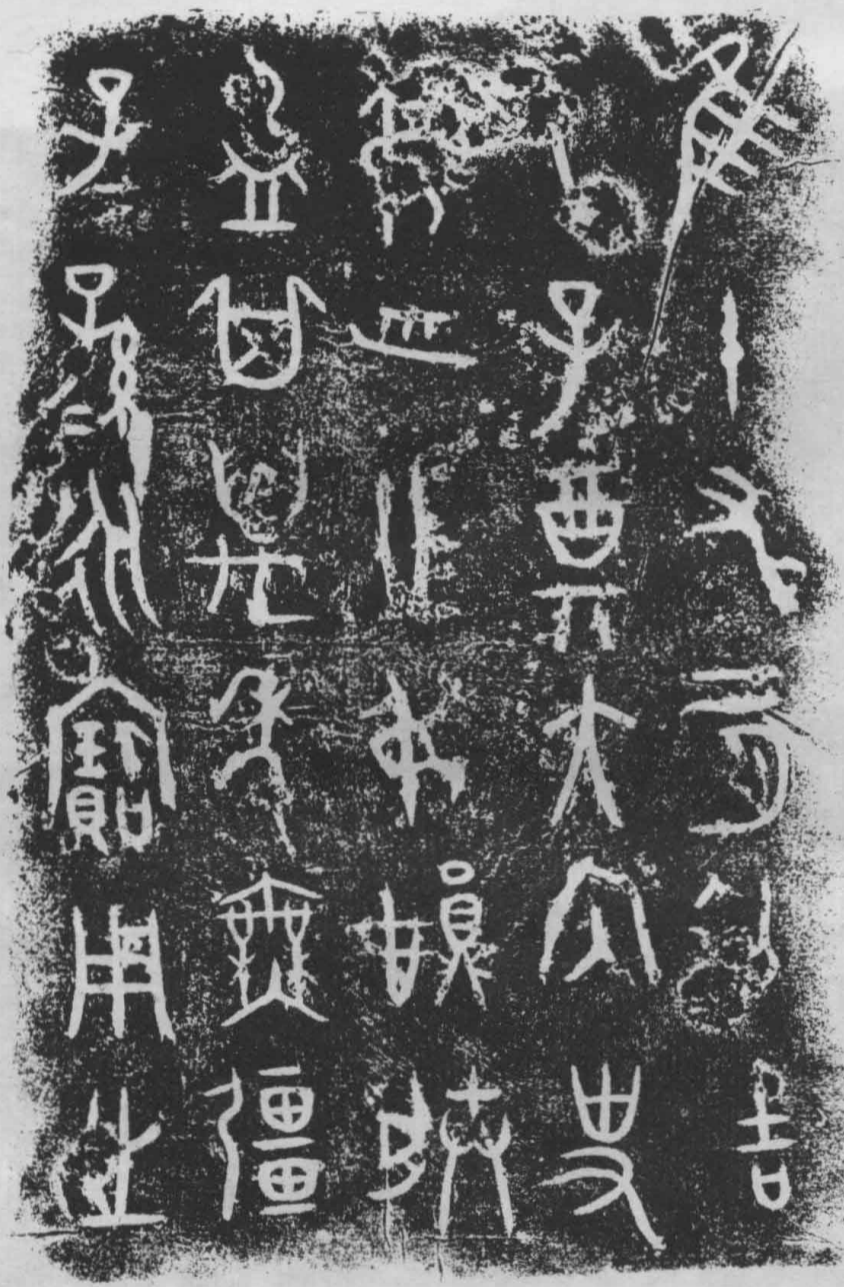 隹十又二月初吉
乙子奠大内史
弔上乍弔娟朕
盁其萬年無彊
子=孫=永寶用之